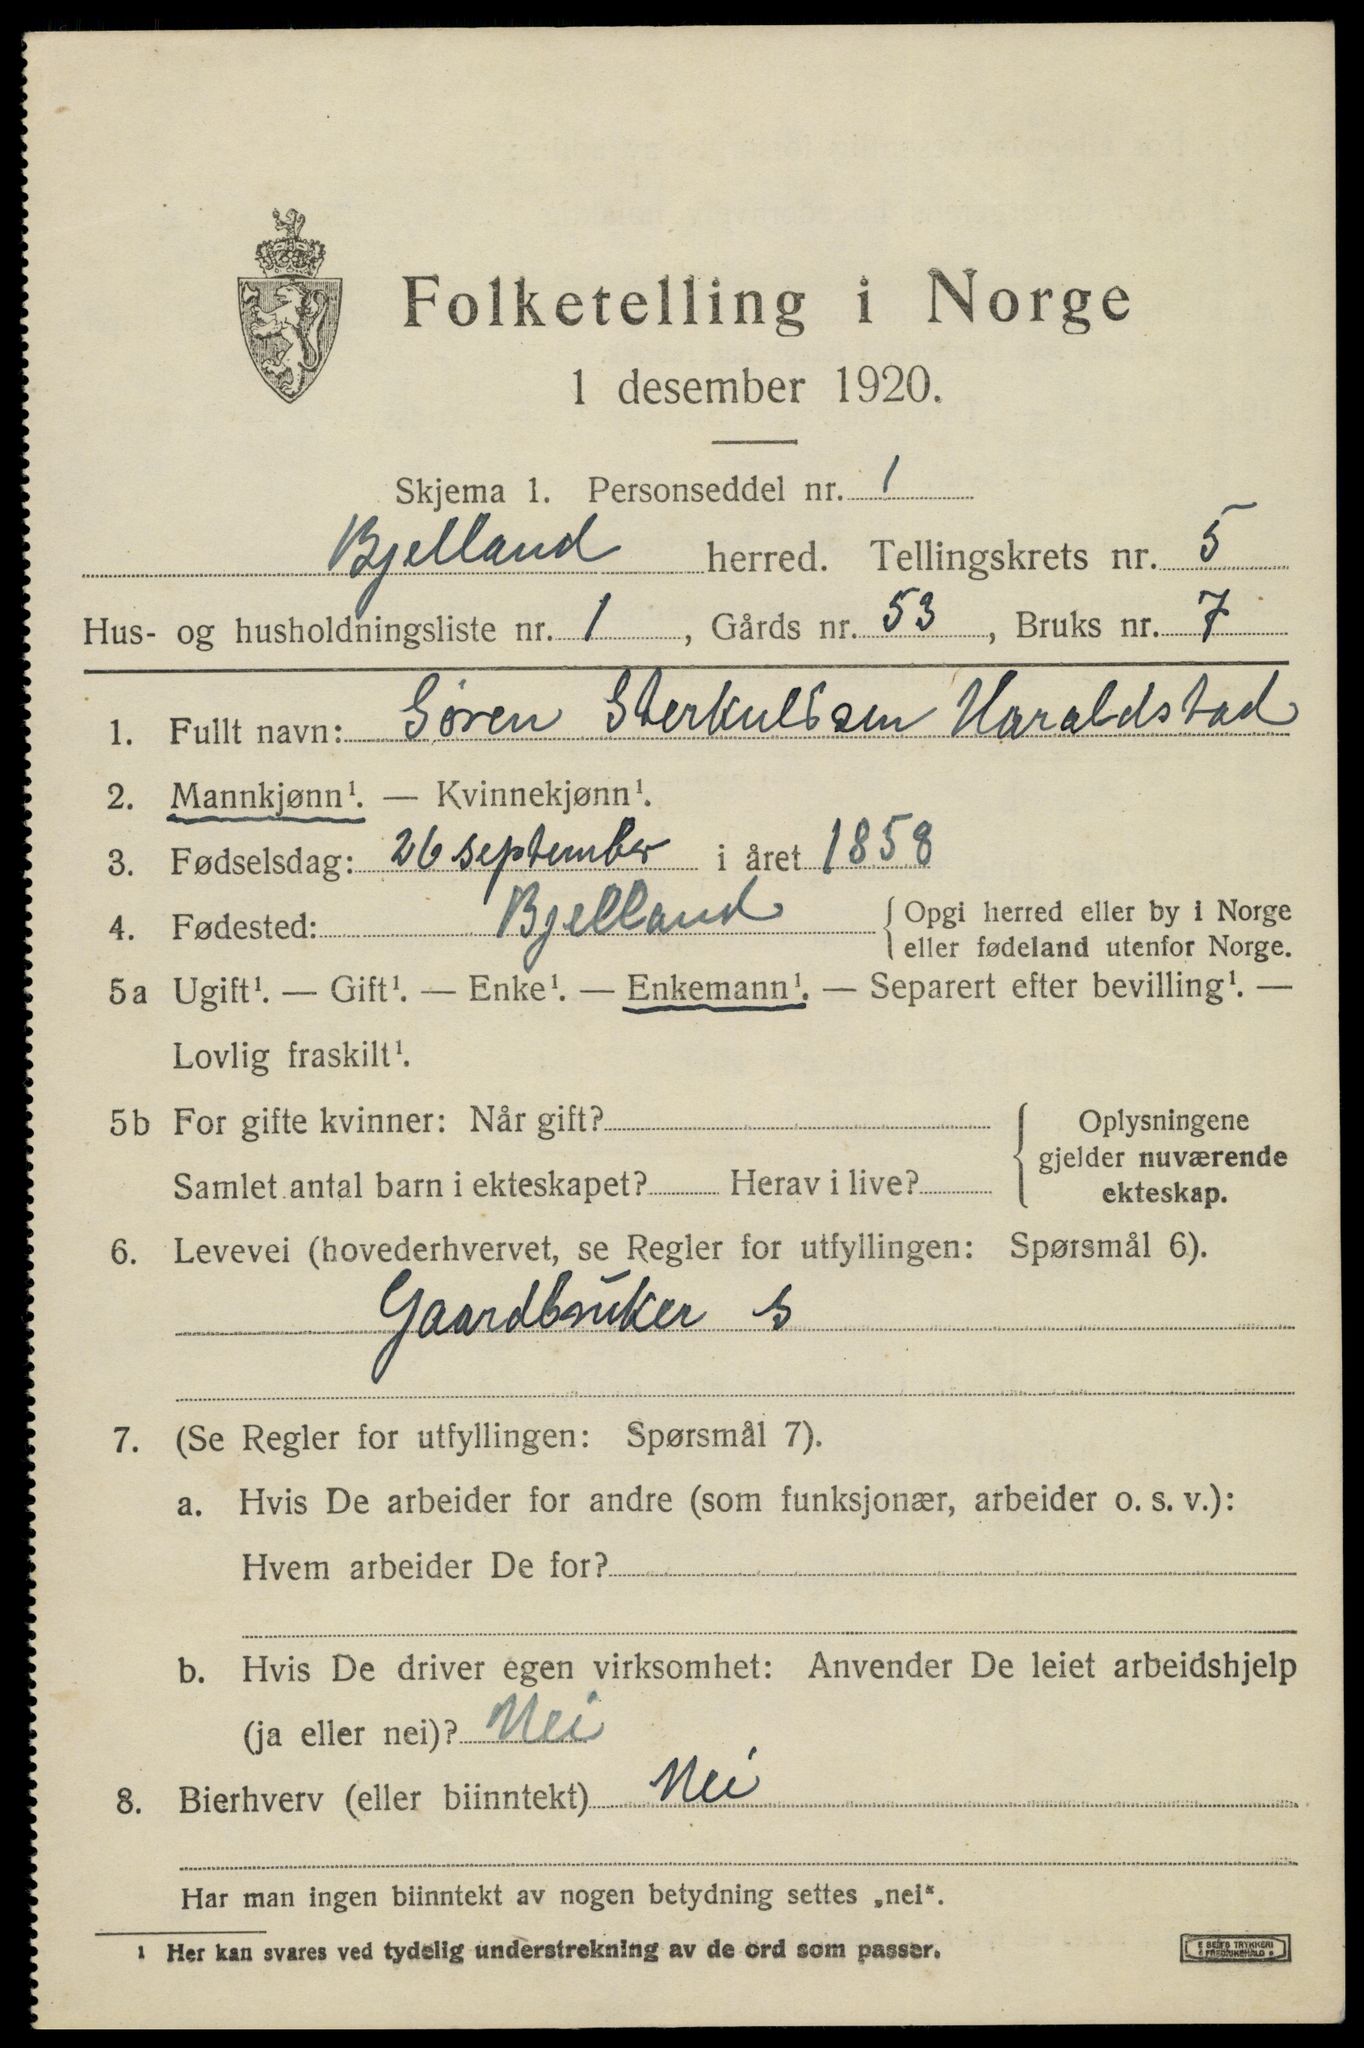 Folketelling i Norge
1 desember 1920.
Skjema 1. Personseddel nr. 1
Bjelland herred. Tellingskrets nr. 5
Hus- og husholdningsliste nr. 1, Gårds nr. 53, Bruks nr. 7
1. Fullt navn: Søren Sterkulssen Haraldstad
2. Mannkjønn¹. — Kvinnekjønn¹.
3. Fødselsdag: 26 september i året 1858
4. Fødested: Bjelland { Opgi herred eller by i Norge
eller fødeland utenfor Norge.
5a Ugift¹. — Gift¹. — Enke¹. — Enkemann¹. — Separert efter bevilling¹. —
Lovlig fraskilt¹.
5b For gifte kvinner: Når gift?
Samlet antal barn i ekteskapet? Herav i live?
Oplysningene
gjelder nuværende
ekteskap.
6. Levevei (hovederhvervet, se Regler for utfyllingen: Spørsmål 6).
Gaardbruker s
7. (Se Regler for utfyllingen: Spørsmål 7).
a. Hvis De arbeider for andre (som funksjonær, arbeider o. s. v.):
Hvem arbeider De for?
b. Hvis De driver egen virksomhet: Anvender De leiet arbeidshjelp
(ja eller nei)? Nei
8. Bierhverv (eller biinntekt) Nei
Har man ingen biinntekt av nogen betydning settes „nei“.
1 Her kan svares ved tydelig understrekning av de ord som passer.
E SEJ'S TRYKKERI
FREDRIKSHALD